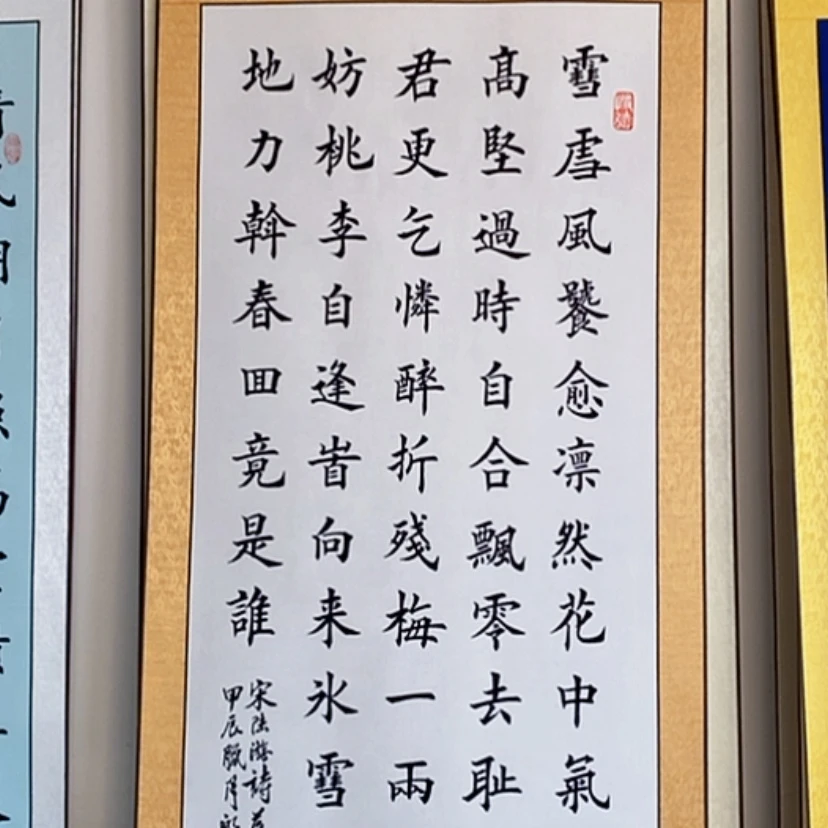 雪虐風饕愈凛然花中氣
髙堅過時自合飄零去耻
君更乞憐醉折殘梅一兩
妨桃李自逢旹向来氷雪
地力斡春回竟是誰
宋陸游詩
甲辰臘月